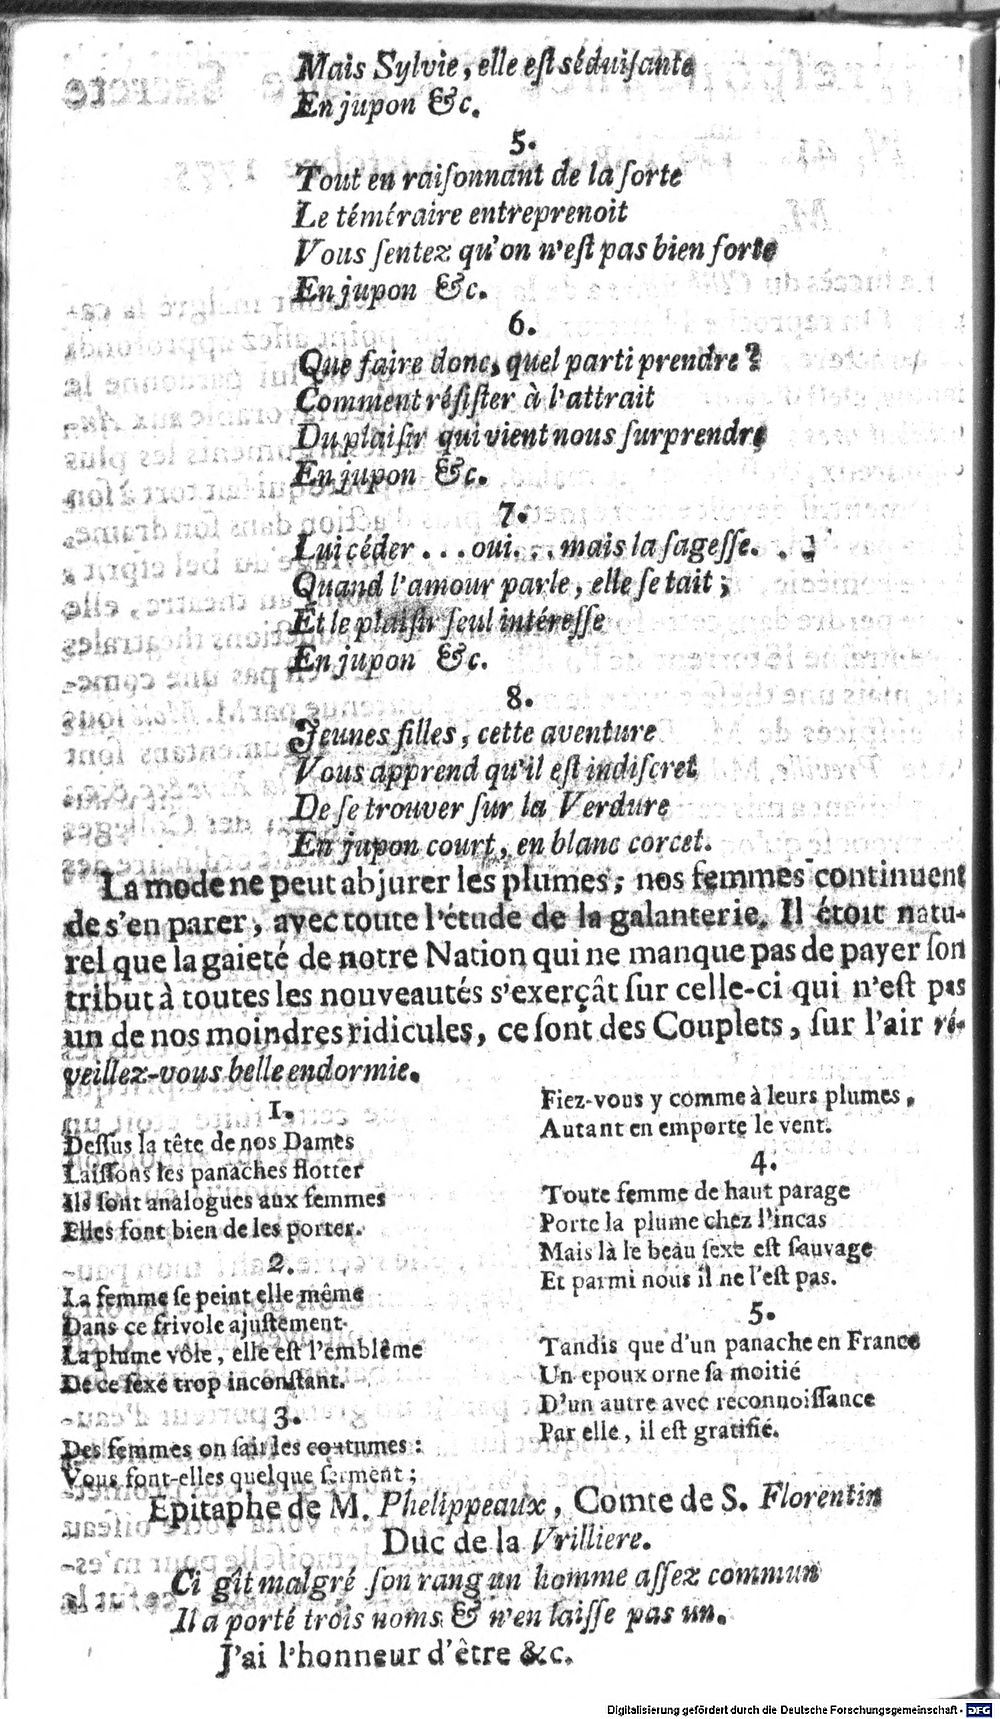 Mais Sylvie, elle eſt séduiſante
En jupon &c.
5.
Tout en raiſonnant de la ſorte
Le téméraire entreprenoit
Vous ſentez qu'on n'eſt pas bien forte
En jupon &c.
6.
Que faire donc, quel parti prendre?
Comment réſiſter à l'attrait
Du plaiſir qui vient nous ſurprendre
En jupon &c.
7.
Lui céder ... oui... mais la ſageſſe. . .
Quand l'amour parle, elle ſe tait;
Et le plaiſir ſeul intéreſſe
En jupon &c.
8.
Jeunes filles, cette aventure
Vous apprend qu'il eſt indiſcret
De ſe trouver ſur la Verdure
En jupon court, en blanc corcet.
La mode ne peut abjurer les plumes; nos femmes continuent
de s'en parer, avec toute l'étude de la galanterie. Il étoit natu-
rel que la gaieté de notre Nation qui ne manque pas de payer ſon
tribut à toutes les nouveautés s'exerçât ſur celle-ci qui n'eſt pas
un de nos moindres ridicules, ce ſont des Couplets, ſur l'air ré-
veillez-vous belle endormie.
1.
Deſſus la tête de nos Dames
Laiſſons les panaches flotter
Ils ſont analogues aux femmes
Elles font bien de les porter.
2.
La femme ſe peint elle même
Dans ce frivole ajuſtement
La plume vôle, elle eſt l'emblême
De ce ſexe trop inconſtant.
3.
Des femmes on ſait les coutumes:
Vous font-elles quelque ſerment;
Fiez-vous y comme à leurs plumes,
Autant en emporte le vent.
4.
Toute femme de haut parage
Porte la plume chez l'incas
Mais là le beau ſexe eſt ſauvage
Et parmi nous il ne l'eſt pas.
5.
Tandis que d'un panache en France
Un epoux orne ſa moitié
D'un autre avec reconnoiſſance
Par elle, il eſt gratifié.
Epitaphe de M. Phelippeaux, Comte de S. Florentin
Duc de la Vrilliere.
Ci gît malgré ſon rang un homme aſſez commun
Il a porté trois noms & n'en laiſſe pas un.
J'ai l'honneur d'être &c.
Digitalisierung gefördert durch die Deutsche Forschungsgemeinschaft - DFG